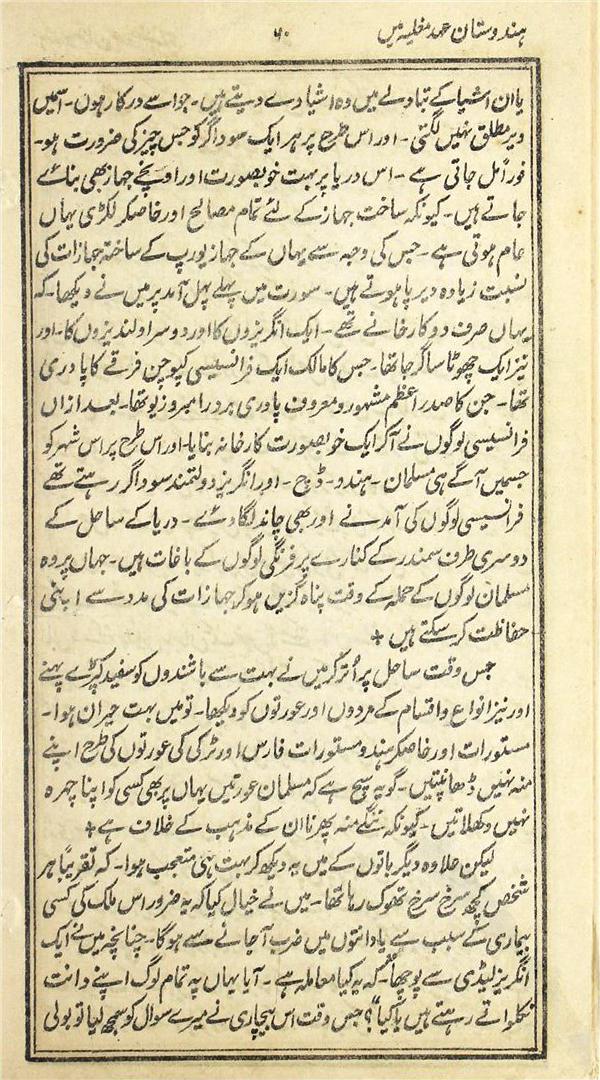 ہندوستان عہد مغلیہ میں ۶۰
یا ان اشیا کے تبادلے میں وہ اشیا دے دیتے ہیں۔ جو اسے درکار ہوں۔ اسمیں
دیر مطلق نہیں لگتی۔ اور اس طرح پر ہر ایک سوداگر کو جس چیز کی ضرورت ہو۔
فوراً مل جاتی ہے۔ اس دریا پر بہت خوبصورت اور اونچے جہاز بھی بنائے
جاتے ہیں۔ کیونکہ ساخت جہاز کے لئے تمام مصالح اور خاصکر لکڑی یہاں
عام ہوتی ہے۔ جس کی وجہ سے یہاں کے جہاز یورپ کے ساختہ جہازات کی
نسبت زیادہ دیرپا ہوتے ہیں۔ سورت میں پہلے پہل آمد پر میں نے دیکھا۔ کہ
یہاں صرف دو کارخانے تھے۔ ایک انگریزوں کا اور دوسرا ولندیزوں کا۔ اور
نیز ایک چھوٹا سا گرجا تھا۔ جس کا مالک ایک فرانسیسی کیپوچن فرقے کا پادری
تھا۔ جن کا صدر اعظم مشہور و معروف پادری بردر امبروزیو تھا۔ بعد ازاں
فرانسیسی لوگوں نے آکر ایک خوبصورت کارخانہ بنایا۔ اور اس طرح پر اس شہر کو
جسمیں آگے ہی مسلمان۔ ہندو۔ ڈچ۔ اور انگریز دولتمند سوداگر رہتے تھے
فرانسیسی لوگوں کی آمد نے اور بھی چاند لگا دئے۔ دریا کے ساحل کے
دوسری طرف سمندر کے کنارے پر فرنگی لوگوں کے باغات ہیں۔ جہاں پر وہ
مسلمان لوگوں کے حملہ کے وقت پناہ گزیں ہو کر جہازات کی مدد سے اپنی
حفاظت کر سکتے ہیں +
جس وقت ساحل پر اُتر کر میں نے بہت سے باشندوں کو سفید کپڑے پہنے
اور نیز انواع و اقسام کے مردوں اور عورتوں کو دیکھا۔ تو میں بہت حیران ہوا۔
مستورات اور خاصکر ہندو مستورات فارس اور ٹرکی کی عورتوں کی طرح اپنے
منہ نہیں ڈھانپتیں۔ گو یہ سچ ہے کہ مسلمان عورتیں یہاں پر بھی کسی کو اپنا چہرہ
نہیں دکھلاتیں۔ کیونکہ ننگے منہ پھرنا ان کے مذہب کے خلاف ہے +
لیکن علاوہ دیگر باتوں کے میں یہ دیکھ کر بہت ہی متعجب ہوا۔ کہ تقریباً ہر
شخص کچھ سرخ سرخ تھوک رہا تھا۔ میں نے خیال کیا کہ یہ ضرور اس ملک کی کسی
بیماری کے سبب سے یا دانتوں میں ضرب آ جانے سے ہوگا۔ چنانچہ میں نے ایک
انگریز لیڈی سے پوچھا۔ کہ "یہ کیا معاملہ ہے۔ آیا یہاں پہ تمام لوگ اپنے دانت
نکلواتے رہتے ہیں یا کیا"؟ جس وقت اس بیچاری نے میرے سوال کو سمجھ لیا تو بولی